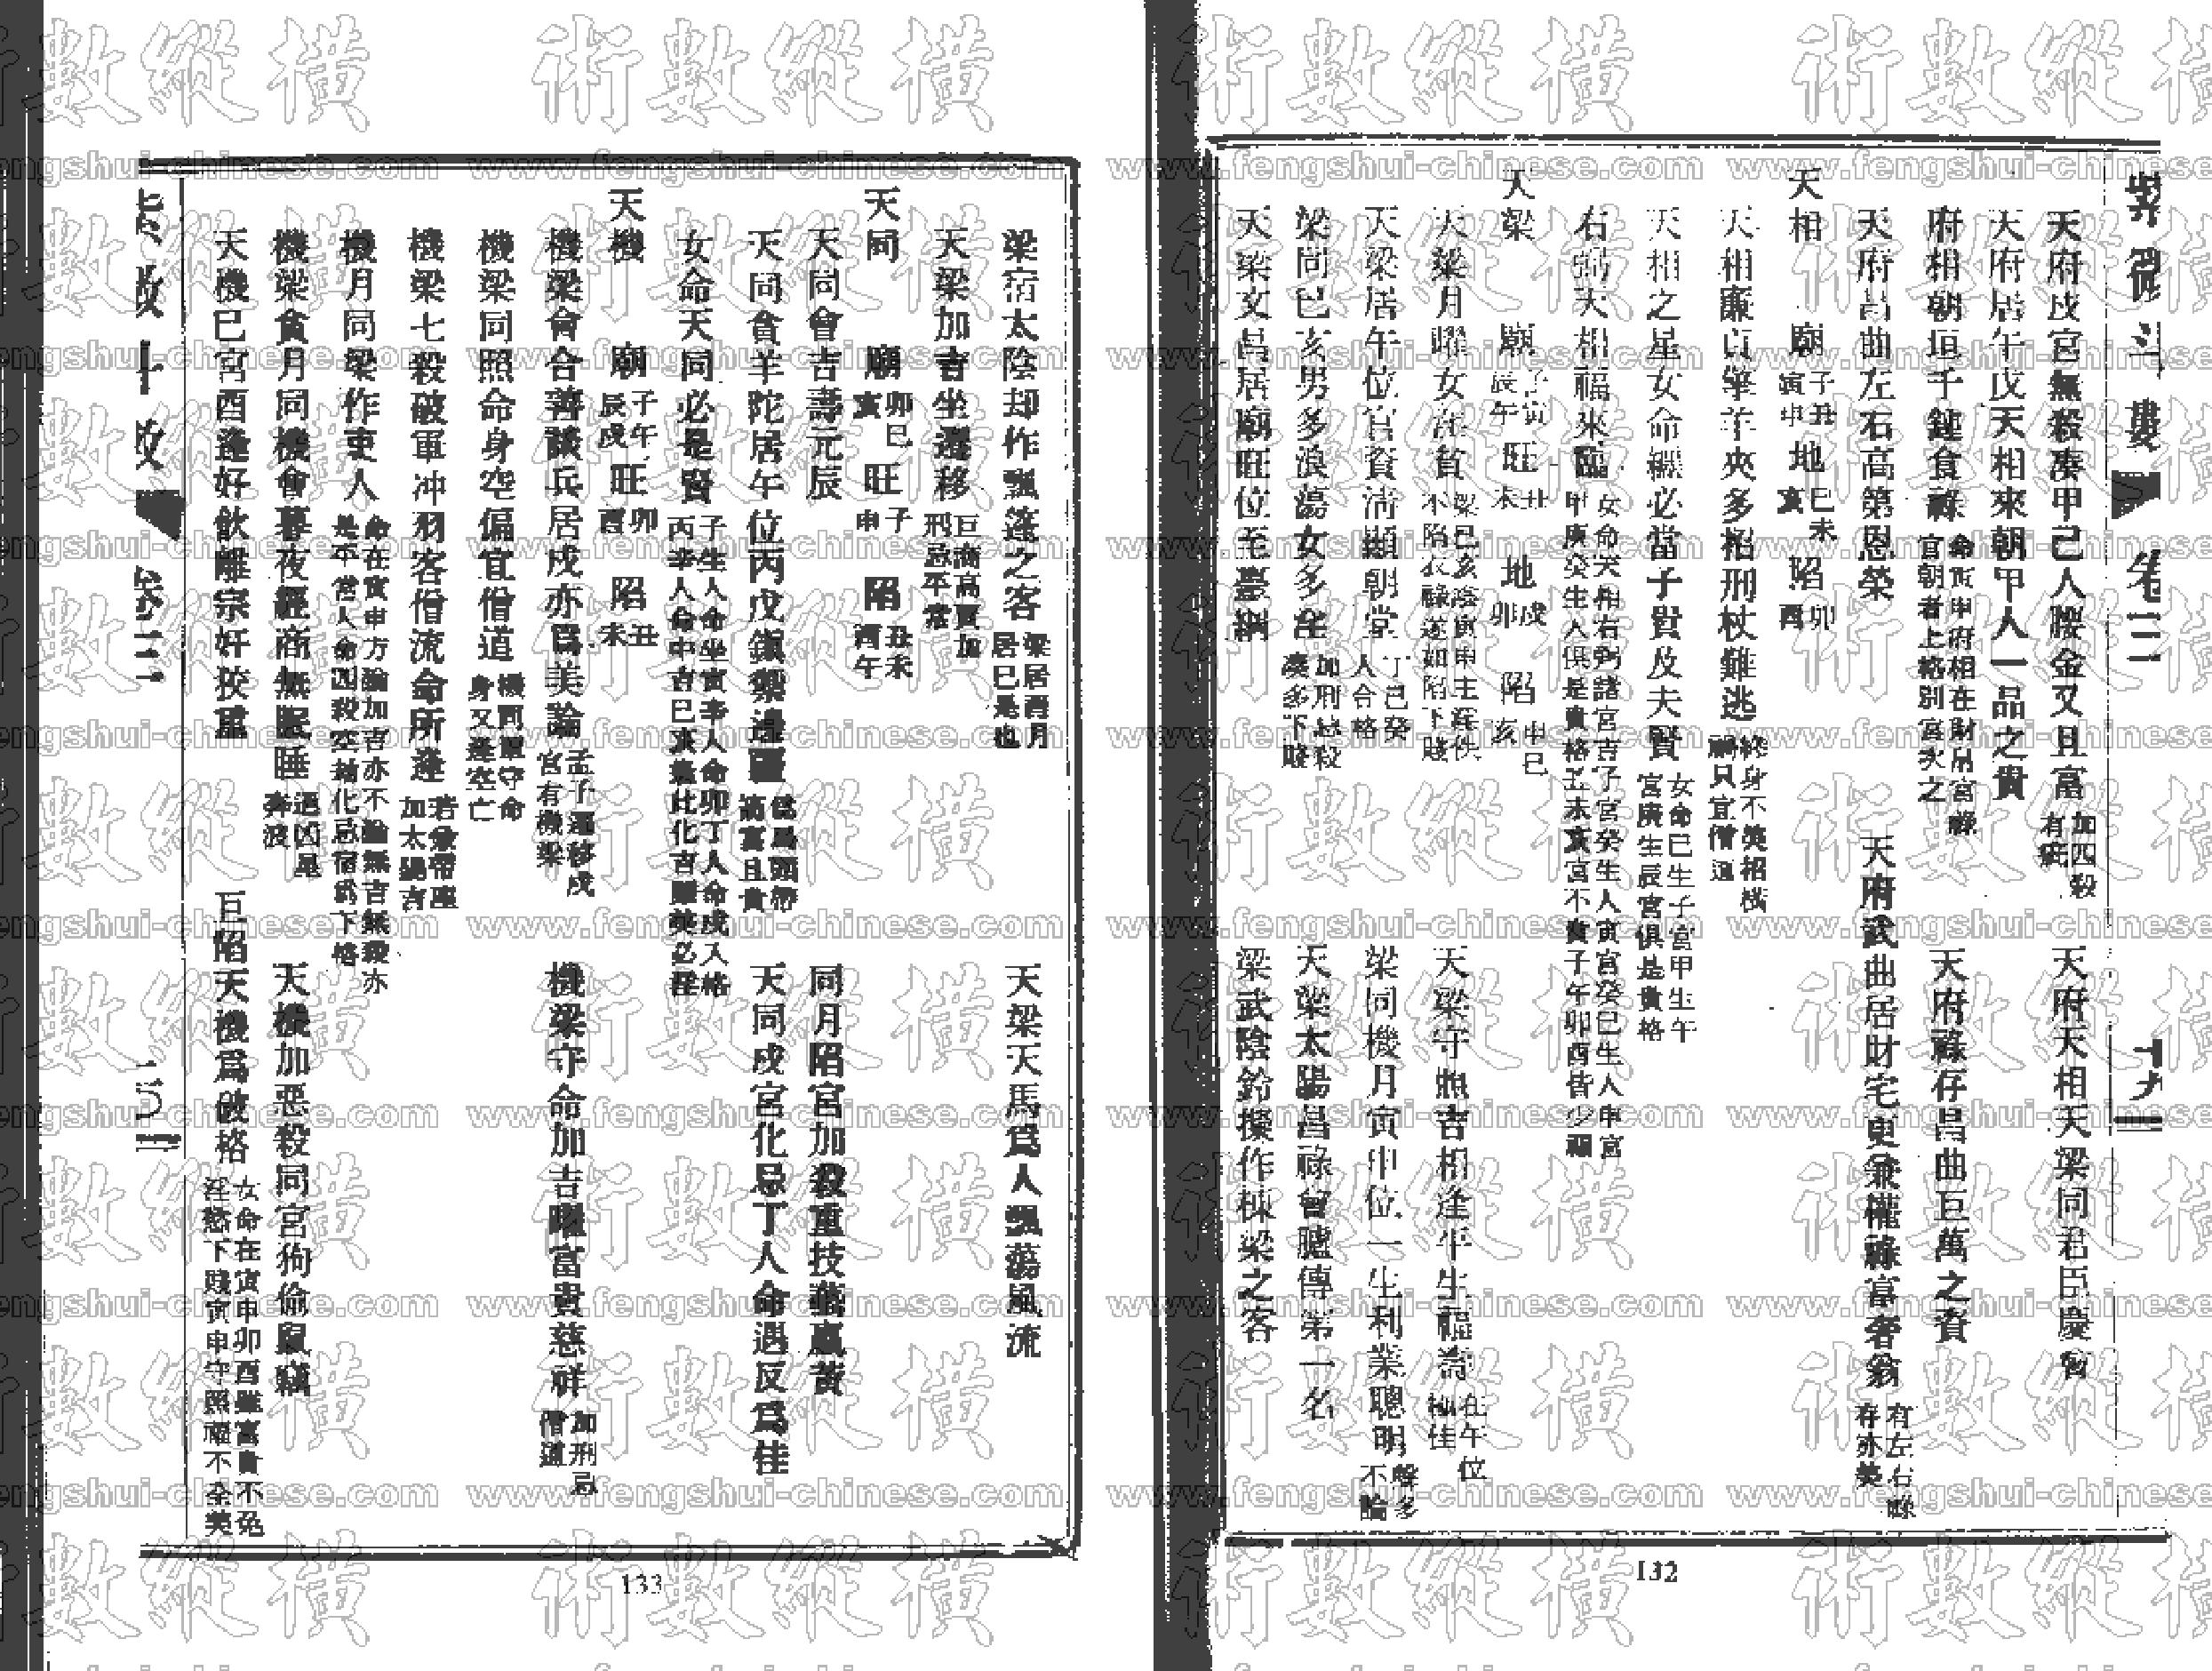 紫微斗數 卷三 十九
天府戌宮無殺湊甲己人腰金又且富 加四殺有疵 天府天相天梁同君臣慶會
天府居午戌天相來朝甲人一品之貴
府相朝垣千鍾食祿 命寅申府相在財帛宮官朝者上格別宮次之 天府祿存昌曲巨萬之資
天府昌曲左右高第恩榮 天府武曲居財宅更兼權祿富奢翁 有左右祿存亦美
天相 廟 子丑寅申 地 巳未亥 陷 卯酉
天相廉貞擎羊夾多招刑杖難逃 終身不美招橫禍只宜僧道
天相之星女命纏必當子貴及夫賢 女命己生子宮甲生午宮庚生辰宮俱是貴格
右弼天相福來臨 女命天相右弼諸宮吉子宮癸生人寅宮癸己生人申宮甲庚癸生人俱是貴格丑未亥宮不貴子午卯酉皆少福
天梁 廟 子寅辰午 旺 丑未 地 戌卯 陷 申巳亥
天梁月曜女淫貧 梁巳亥陰寅申主淫佚不陷衣祿遂如陷下賤 天梁守照吉相逢平生福壽 在午位極佳
天梁居午位官資清顯朝堂 丁己癸人合格 梁同機月寅申位一生利業聰明 殺多不論
梁同巳亥男多浪蕩女多淫 加刑忌殺湊多下賤 天梁太陽昌祿會臚傳第一名
天梁文昌居廟旺位至臺綱 梁武陰鈴擬作棟梁之客
132
梁宿太陰却作飄蓬之客 梁居酉月居巳是也 天梁天馬爲人飄蕩風流
天梁加吉坐遷移 巨商高賈加刑忌平常
天同 廟 卯巳亥 旺 子申 陷 丑未酉午
天同會吉壽元辰 同月陷宮加殺重技藝羸黃
天同會羊陀居午位丙戊鎮禦邊疆 爲馬頭帶箭富且貴 天同戌宮化忌丁人命遇反爲佳
女命天同必是賢 子生人命坐寅辛人命卯丁人命戌入格丙辛人命申吉巳亥逢此化吉雖美必淫
天機 廟 子午辰戌 旺 卯酉 陷 丑未
機梁會合善談兵居戌亦爲美論 孟子遷移戌宮有機梁 機梁守命加吉曜富貴慈祥 加刑忌僧道
機梁同照命身空偏宜僧道 機同單守命身又逢空亡
機梁七殺破軍冲羽客僧流命所逢 若會帝座加太陽吉
機月同梁作吏人 命在寅申方論加吉亦不論無吉無殺亦是平常人命四殺空劫化忌宿爲下格
機梁貪月同機會暮夜經商無眠睡 遇凶星奔波 天機加惡殺同宮狗偷鼠竊
天機巳宮酉逢好飲離宗奸狡重 巨陷天機爲破格 女命在寅申卯酉雖富貴不免淫慾下賤寅申守照福不全美
紫微斗數 卷三
133
www.fengshui-chinese.com